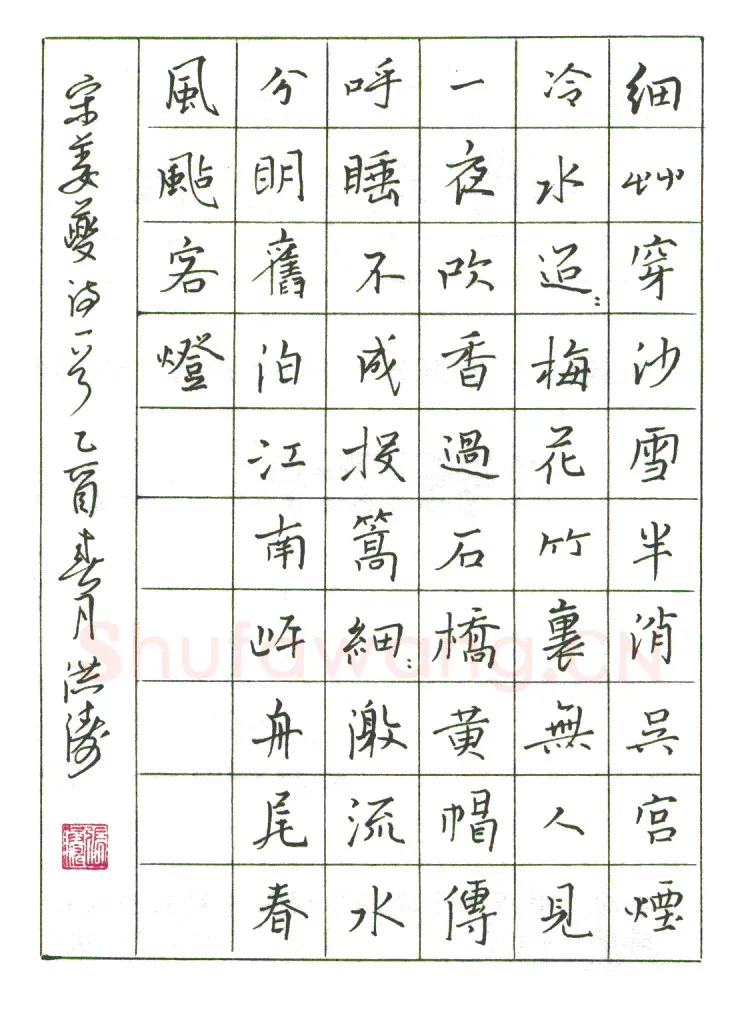 細艸穿沙雪半消吳宮煙
冷水迢〻梅花竹裏無人見
一夜吹香過石橋黃帽傳
呼睡不成投篙細〻激流水
分明舊泊江南岸舟尾春
風颭客燈
宋姜夔詩首乙酉春月洪濤
Shufawang.CN